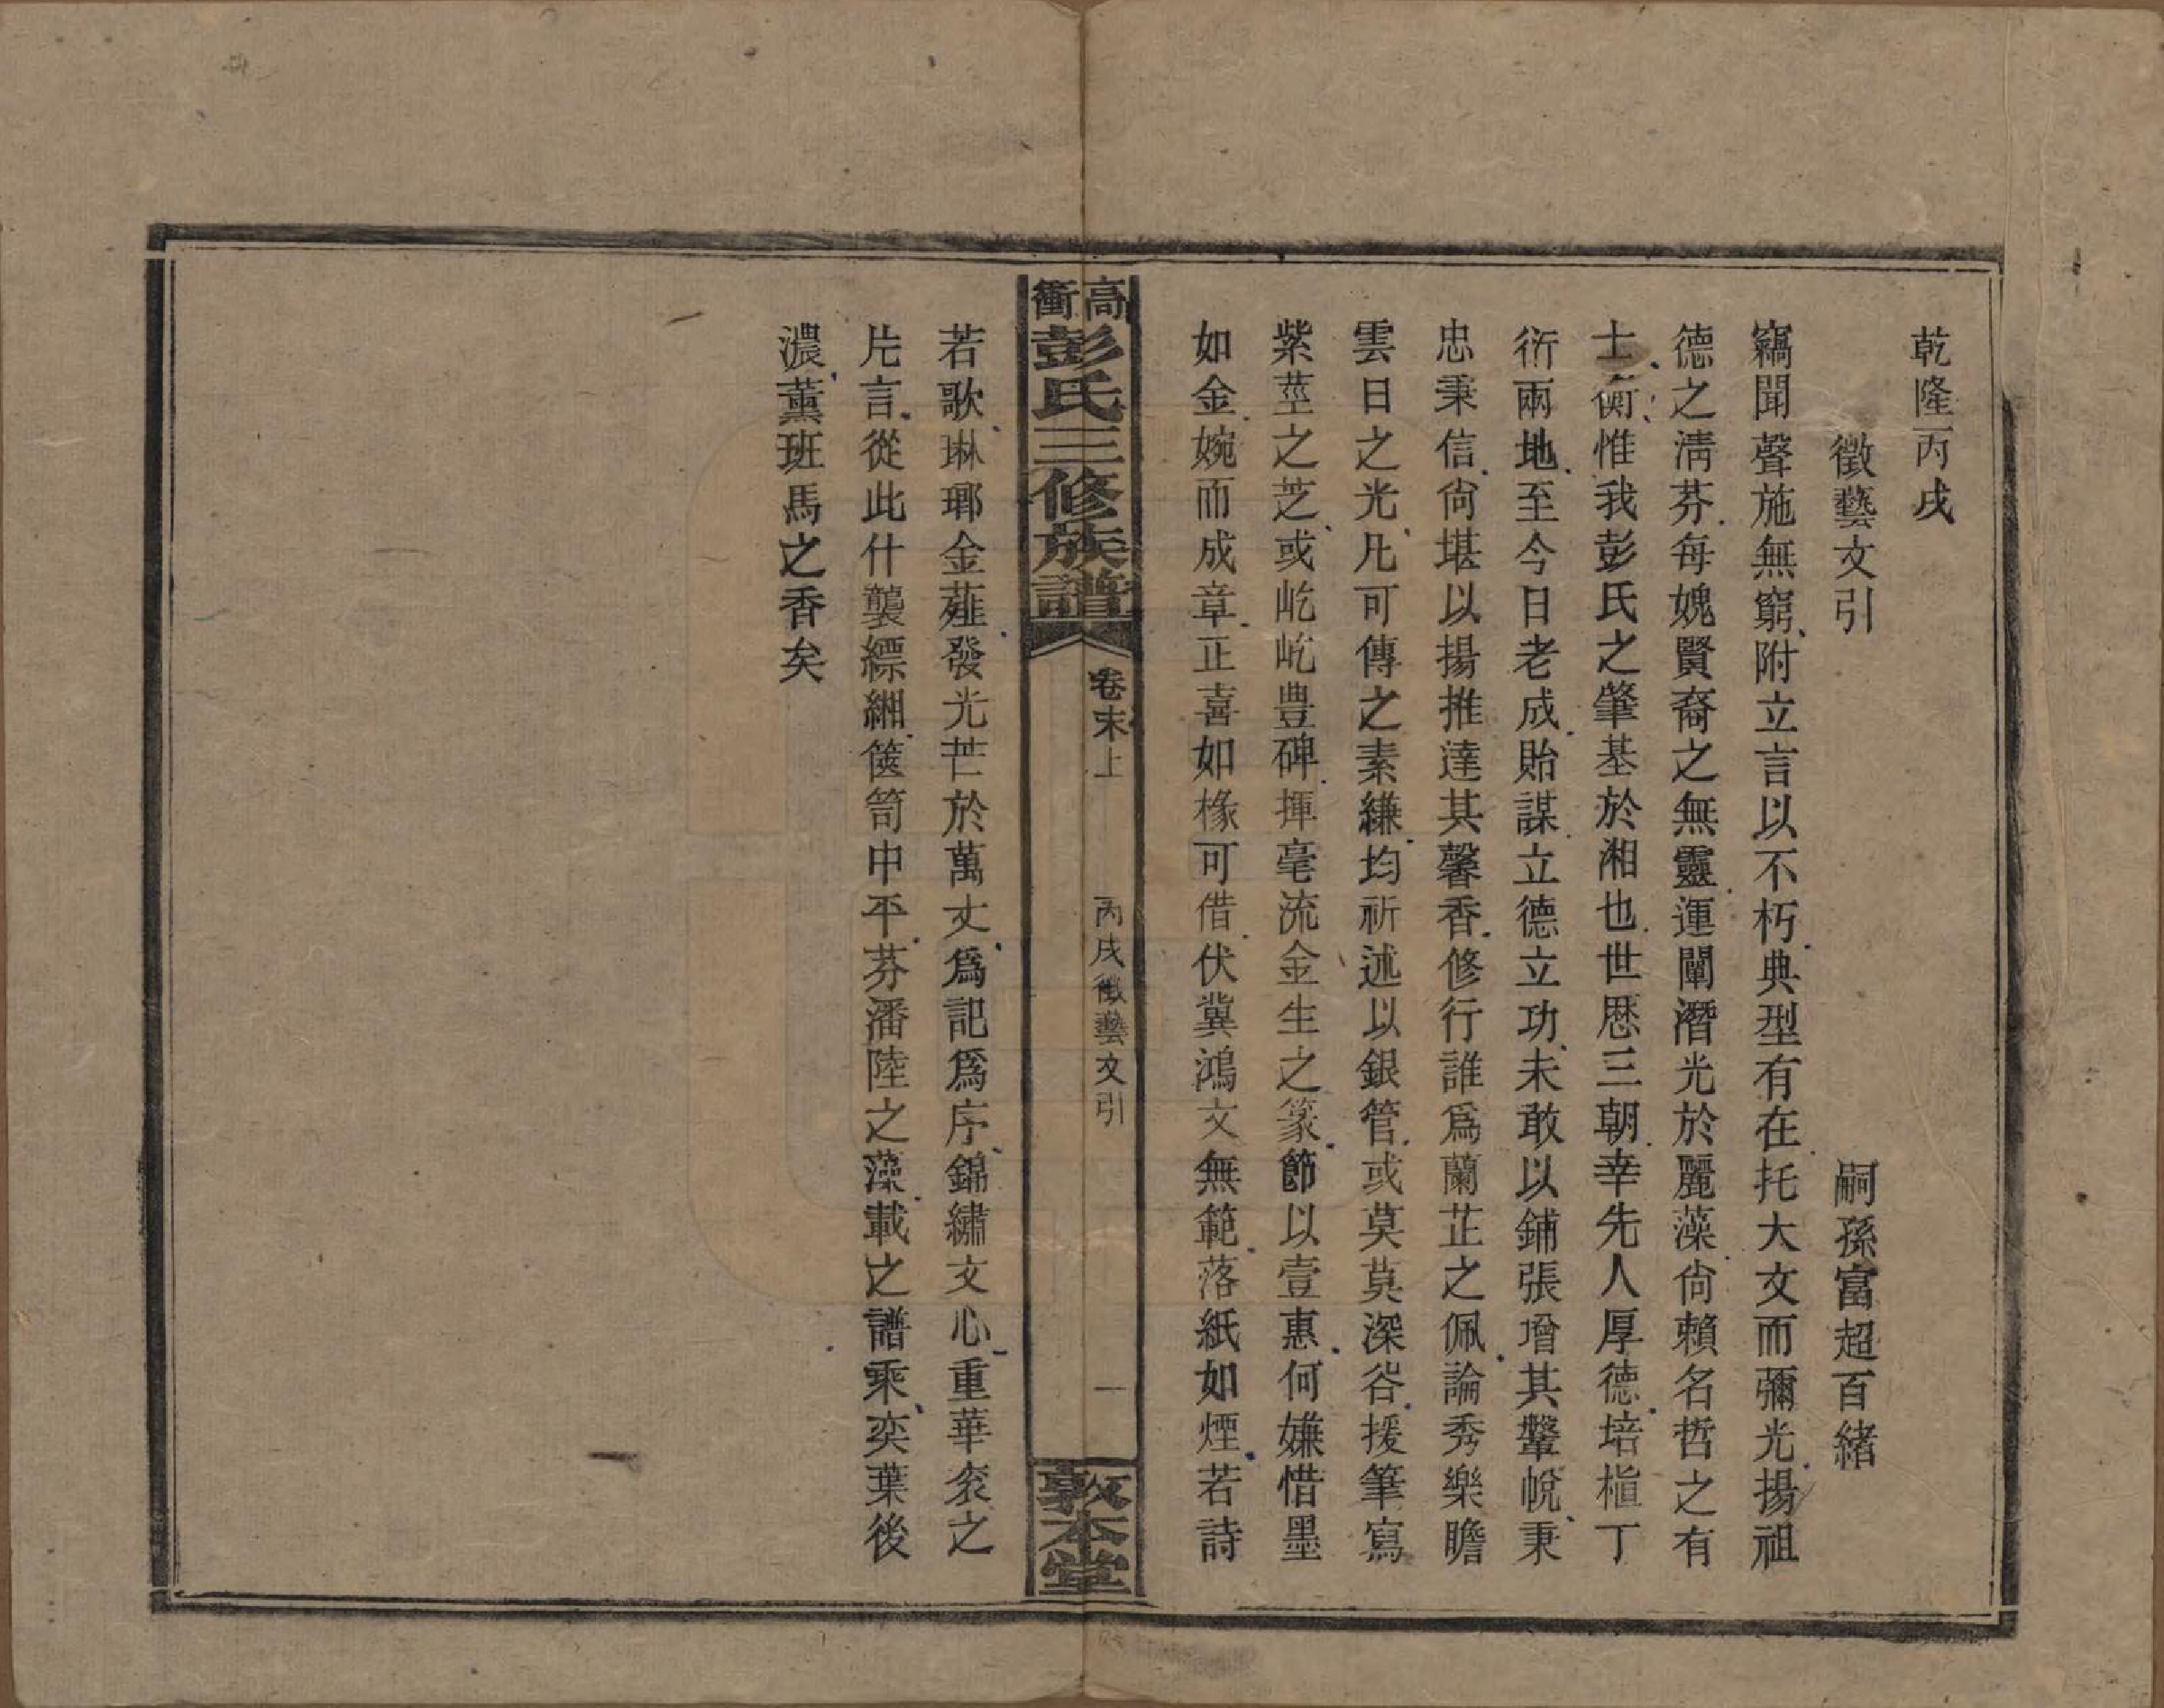 乾隆丙戌
徵藝文引
嗣孫富超百緒
竊聞聲施無窮附立言以不朽典型有在托大文而彌光揚祖
德之淸芬每媿賢裔之無靈運闡潛光於麗藻尙賴名哲之有
士衡惟我彭氏之肇基於湘也世歷三朝幸先人厚德培植丁
衍兩地至今日老成貽謀立德立功未敢以鋪張增其鞶帨秉
忠秉信尙堪以揚推達其馨香修行誰爲蘭芷之佩論秀樂瞻
雲日之光凡可傳之素縑均祈述以銀管或莫莫深谷援筆寫
紫莖之芝或屹屹豊碑揮毫流金生之篆節以壹惠何嫌惜墨
如金婉而成章正喜如椽可借伏冀鴻文無範落紙如煙若詩
高衝
彭氏三修族譜
卷末上
丙戌徵藝文引
一
敦本堂
若歌琳瑯金薤發光芒於萬丈爲記爲序錦繡文心重華袞之
片言從此什襲縹緗篋笥中平芬潘陸之藻載之譜乘奕葉後
濃薰班馬之香矣